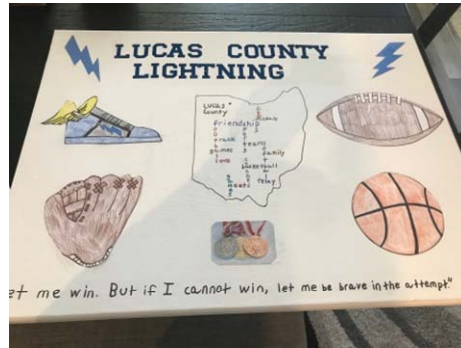 LUCAS COUNTY
LIGHTNING
LUCAS
County
friendship
track
teams
games
family
basketball
relay
et me win. But if I cannot win, let me be brave in the attempt."